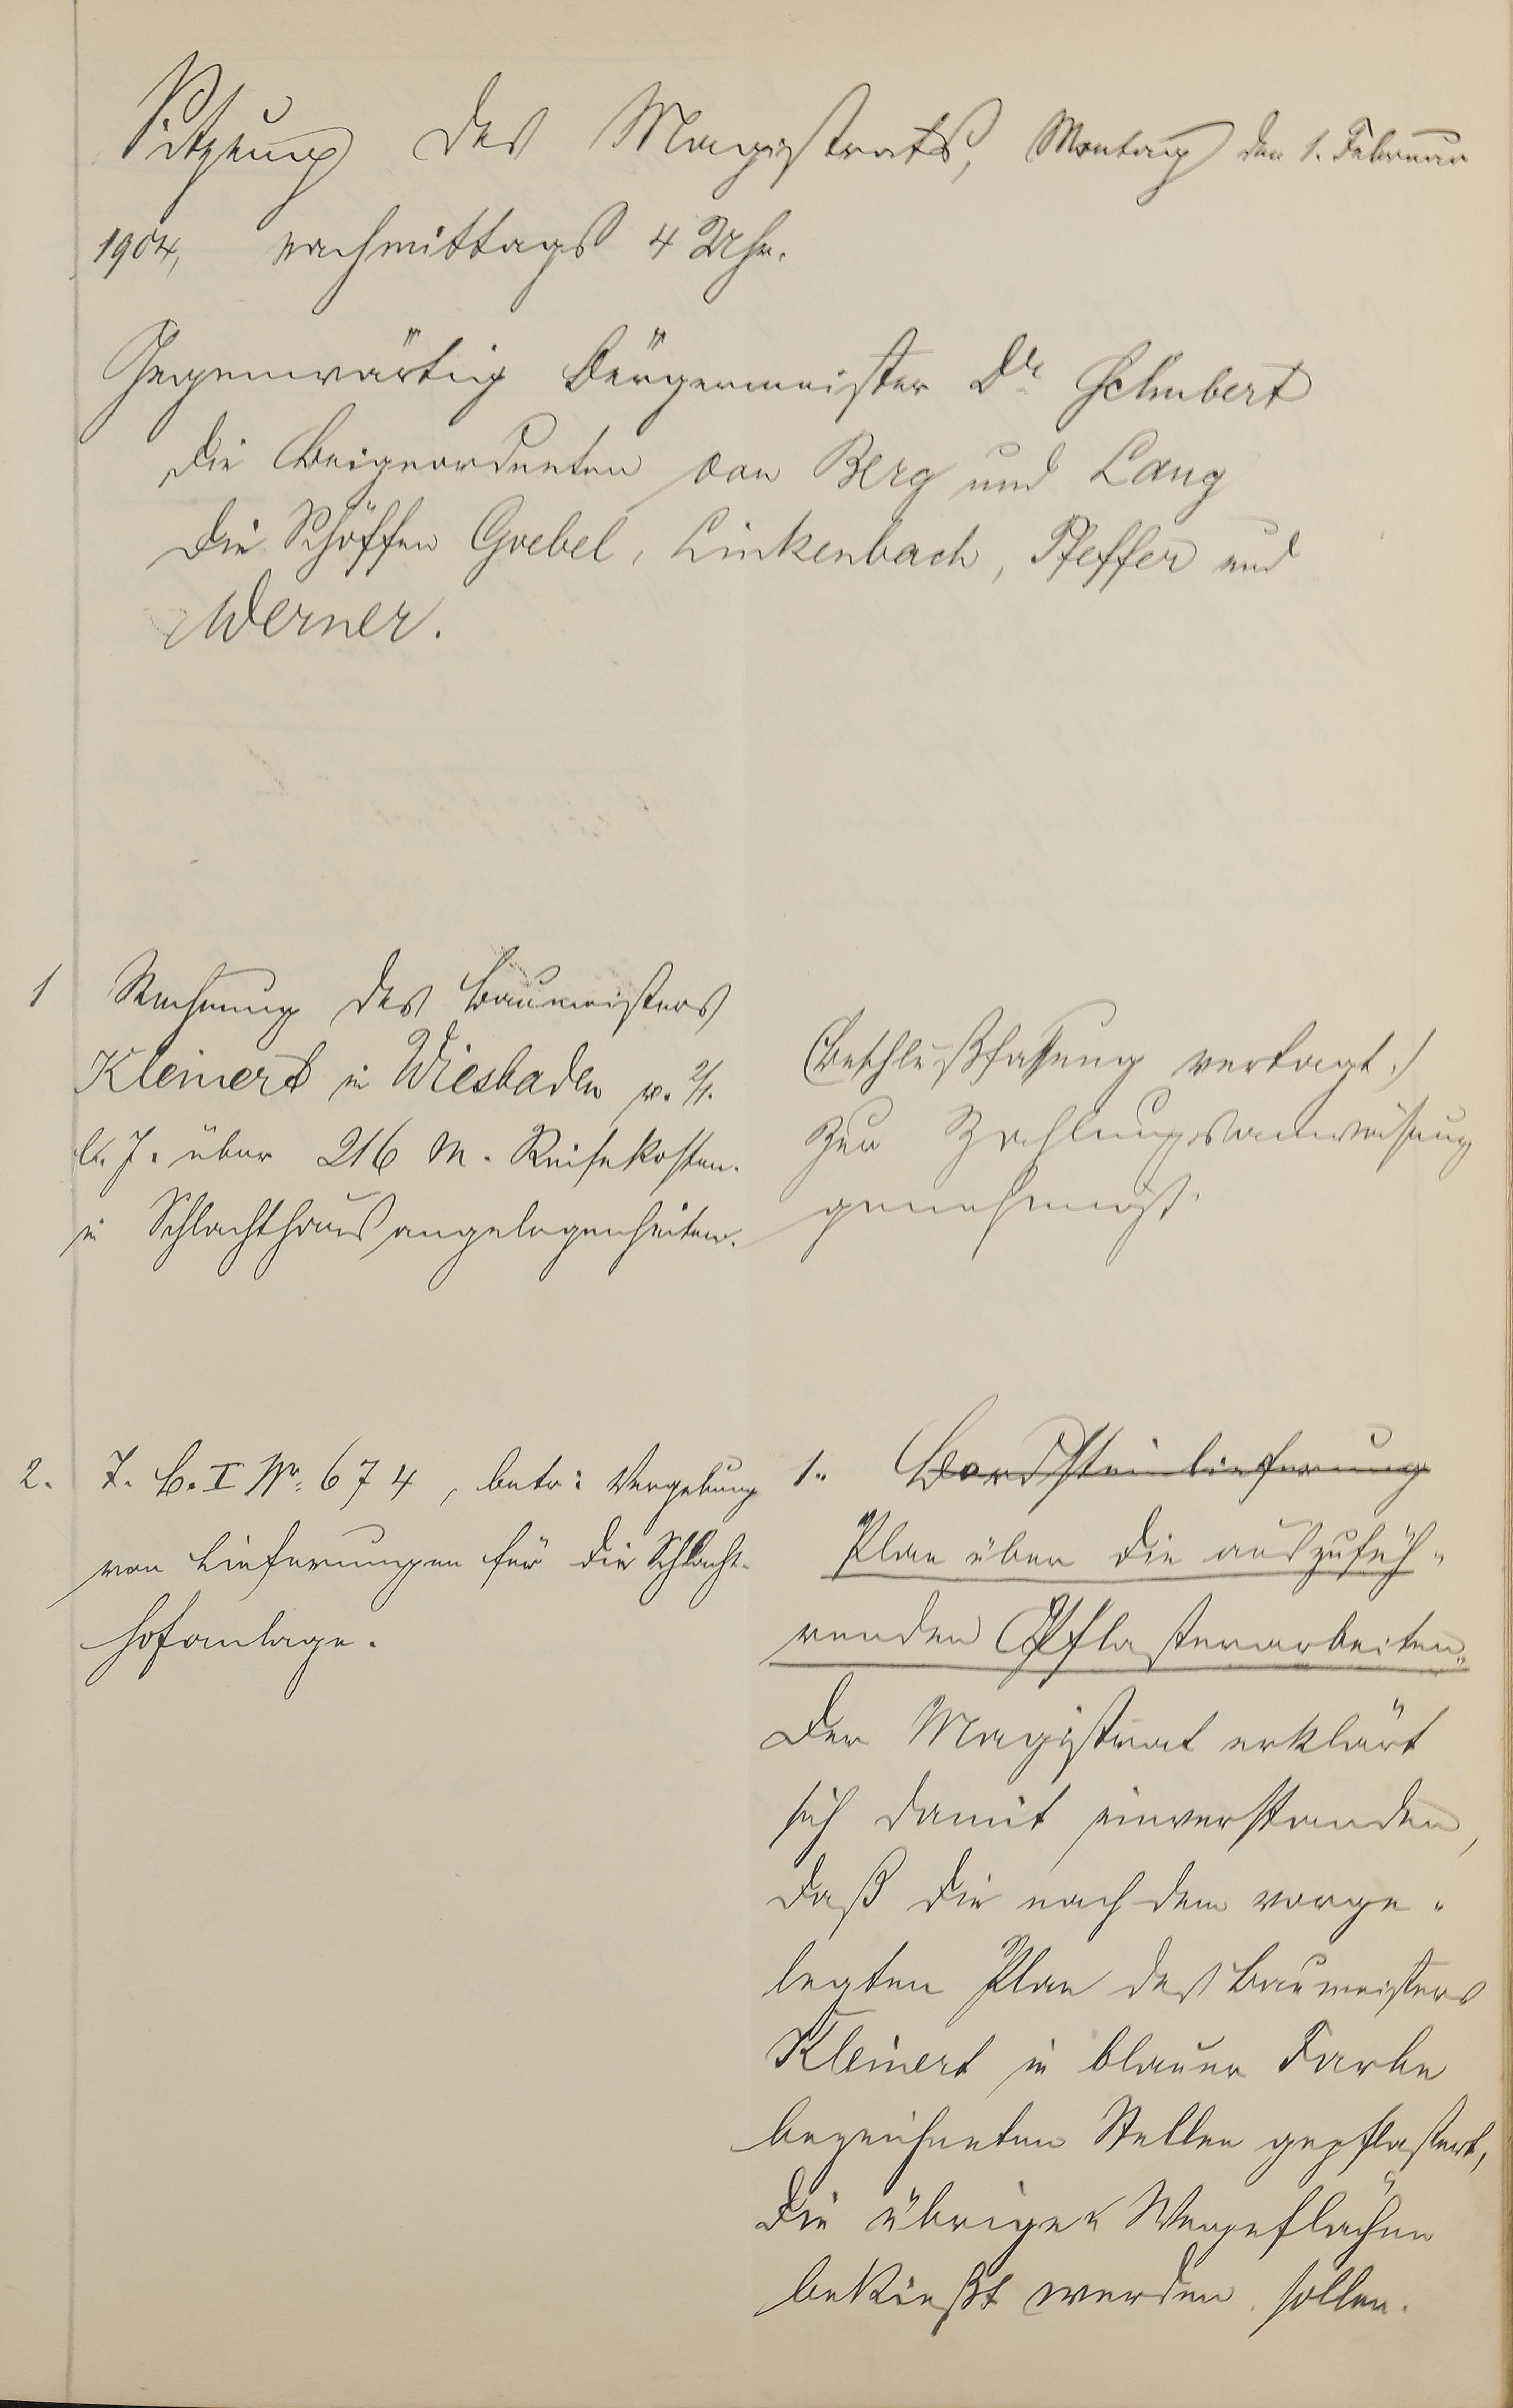 Sitzung des Magistrats, Montag den 1. Februar
1904, nachmittags 4 Uhr.
Gegenwärtig Bürgermeister Dr. Schubert
die Beigeordneten von Berg und Lang
die Schöffen Goebel, Linkenbach, Pfeffer und
Werner.
1 Rechnung des Baumeisters
Kleinert in Wiesbaden v. 2/1.
l. J. über 216 M. Reisekosten
in Schlachthausangelegenheiten.
(Beschlußfassung vertagt.)
Zur Zahlungsanweisung
genehmigt.
2. J. B. I No. 674, betr: Vergebung
von Lieferungen für die Schlacht-
hofanlage.
1. Bordsteinlieferung
Plan über die auszufüh-
renden Pflasterarbeiten.
Der Magistrat erklärt
sich damit einverstanden,
daß die nach dem vorge-
legten Plan des Baumeisters
Kleinert in blauer Farbe
bezeichneten Stellen gepflastert,
die übrigen Wegeflächen
bekießt werden sollen.